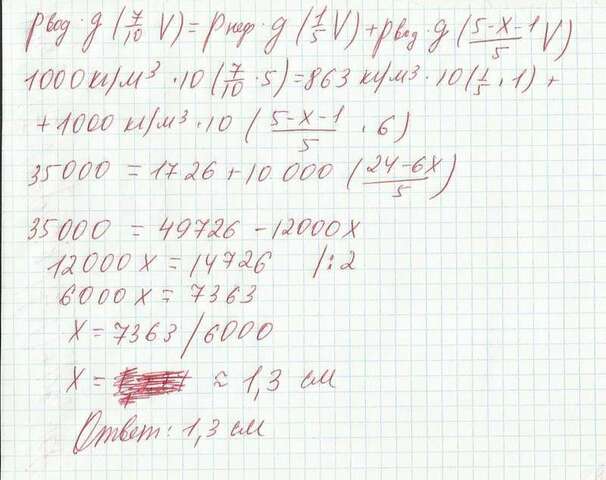 ρвод·g (7/10 V) = ρнеф·g (1/5 V) + ρвод·g (5-x-1/5 V)
1000 кг/м³ ·10 (7/10 ·5) = 863 кг/м³ ·10 (1/5 ·1) +
+ 1000 кг/м³ ·10 (5-x-1/5 ·6)
35000 = 1726 + 10 000 (24-6x/5)
35000 = 49726 - 12000x
12000x = 14726 /:2
6000x = 7363
x = 7363/6000
x = ≈ 1,3 см
Ответ: 1,3 см